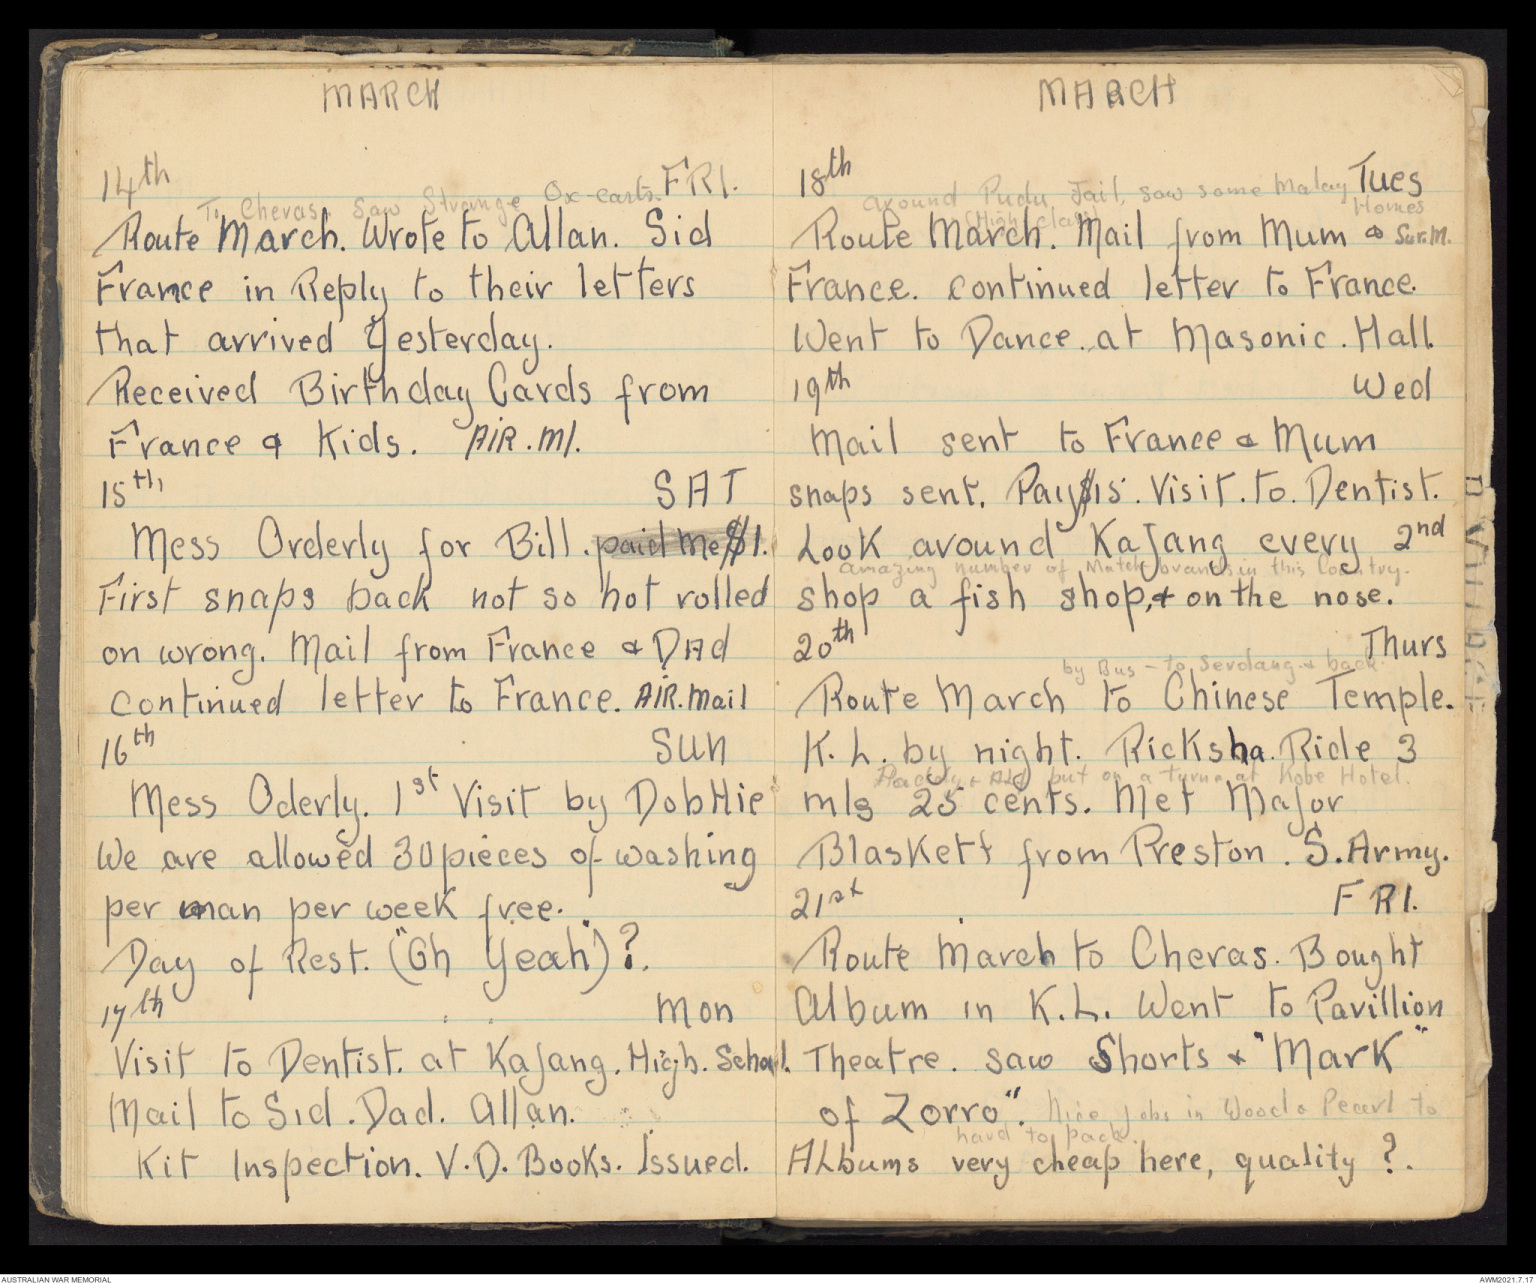 MARCH
14th FRI.
To Cheras. Saw Strange Ox-carts.
Route March. Wrote to Allan. Sid
France in Reply to their letters
that arrived Yesterday.
Received Birthday Cards from
France & Kids. AIR. Ml.
15th SAT
Mess Orderly for Bill. paid me $1.
First snaps back not so hot rolled
on wrong. Mail from France & DAd
continued letter to France. AIR. Mail
16th SUN
Mess Oderly. 1st Visit by DobHie
We are allowed 30 pieces of washing
per man per week free.
Day of Rest. ("Oh Yeah")?.
17th Mon
Visit to Dentist. at KaJang. High. School.
Mail to Sid. Dad. Allan.
Kit Inspection. V.D. Books. Issued.
MARCH
18th Tues
around Pudu, Jail, saw some Malay Homes
(High class)
Route March. Mail from Mum &
France. continued letter to France.
Went to Dance. at Masonic. Hall.
19th Wed
Mail sent to France & Mum
snaps sent. Pay $15. Visit. to. Dentist.
Look around KaJang every 2nd
amazing number of Match-brands in this Country.
shop a fish shop, & on the nose.
20th Thurs
by Bus - to Serdang & back.
Route March to Chinese Temple.
K.L. by night. Ricksha Ride 3
Paddy & put on a turn at Kobe Hotel.
mls 25 cents. Met Major
Blaskett from Preston. S. Army.
21st FRI.
Route March to Cheras. Bought
Album in K.L. Went to Pavillion
Theatre. saw Shorts & "Mark
of Zorro". Nice jobs in Wood & Pearl to
hard to pack.
Albums very cheap here, quality ?.
AUSTRALIAN WAR MEMORIAL
AWM2021.7.17